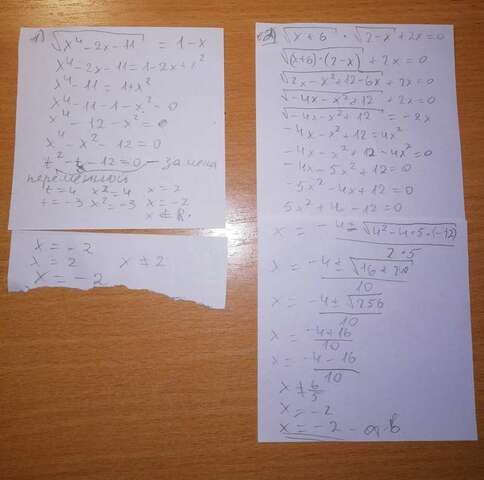 1) √x⁴-2x-11 = 1-x
x⁴-2x-11=1-2x+x²
x⁴-11=1+x²
x⁴-11-1-x²=0
x⁴-12-x²=0
x⁴-x²-12=0
t²-t-12=0 - замена
переменной
t=4 x²=4 x=2
t=-3 x²=-3 x=-2
x∉R.
x=-2
x=2 x≠2
x=-2
2) √x+6 · √2-x +2x=0
√(x+6)·(2-x) +2x=0
√2x-x²+12-6x +2x=0
√-4x-x²+12 +2x=0
√-4x-x²+12 = -2x
-4x-x²+12=4x²
-4x-x²+12-4x²=0
-4x-5x²+12=0
-5x²-4x+12=0
5x²+4x-12=0
x = -4±√4²-4·5·(-12)
2·5
x = -4±√16+240
10
x = -4±√256
10
x = -4+16
10
x = -4-16
10
x≠6/5
x=-2
x=-2 -